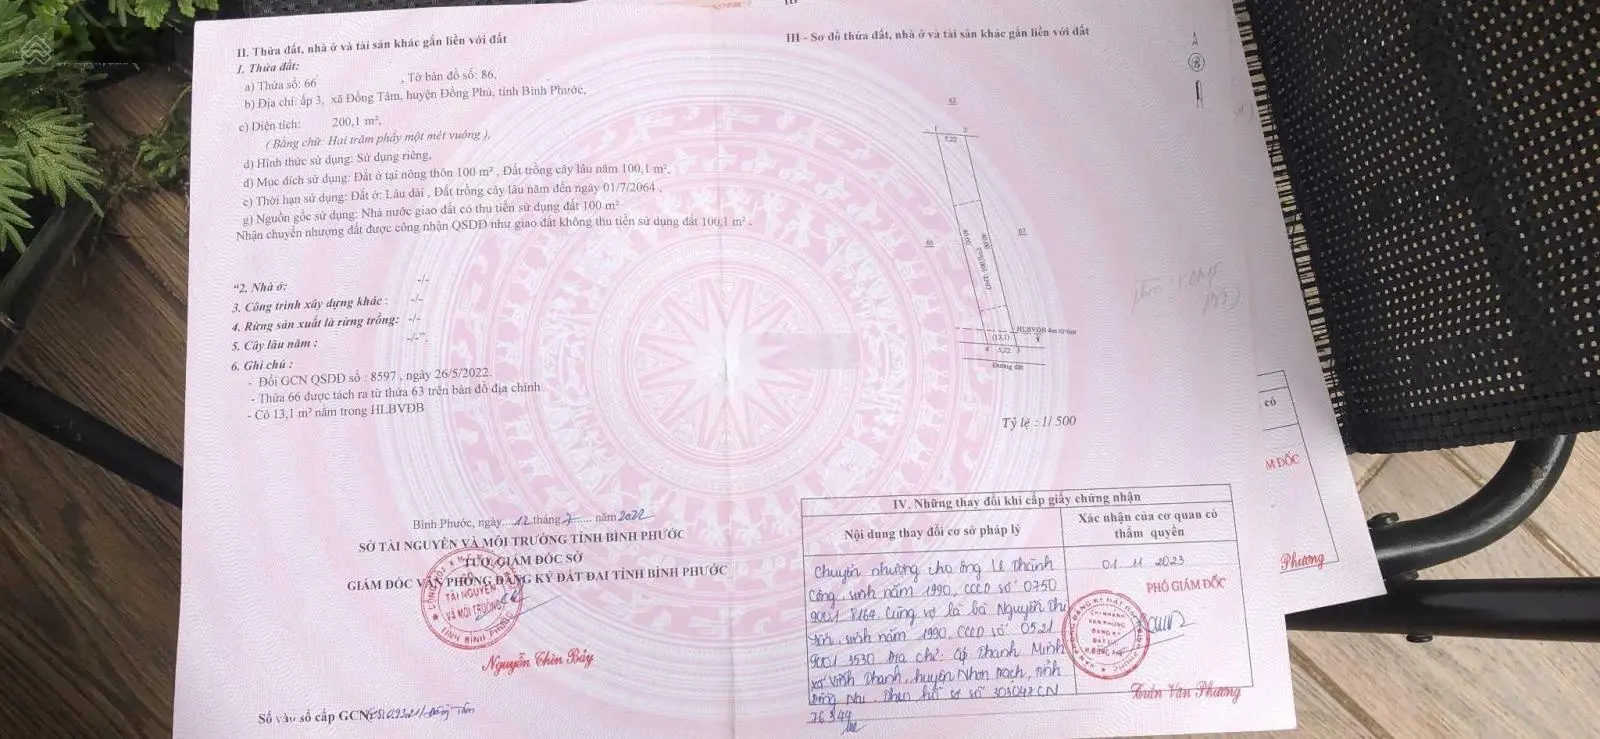 II. Thửa đất, nhà ở và tài sản khác gắn liền với đất
1. Thửa đất:
a) Thửa số: 66 , Tờ bản đồ số: 86,
b) Địa chỉ: ấp 3, xã Đồng Tâm, huyện Đồng Phú, tỉnh Bình Phước,
c) Diện tích: 200,1 m²,
( Bằng chữ: Hai trăm phẩy một mét vuông ),
d) Hình thức sử dụng: Sử dụng riêng,
đ) Mục đích sử dụng: Đất ở tại nông thôn 100 m² , Đất trồng cây lâu năm 100,1 m²,
e) Thời hạn sử dụng: Đất ở: Lâu dài , Đất trồng cây lâu năm đến ngày 01/7/2064 ,
g) Nguồn gốc sử dụng: Nhà nước giao đất có thu tiền sử dụng đất 100 m²
Nhận chuyển nhượng đất được công nhận QSDĐ như giao đất không thu tiền sử dụng đất 100,1 m² .
"2. Nhà ở: -/-
3. Công trình xây dựng khác : -/-
4. Rừng sản xuất là rừng trồng: -/-
5. Cây lâu năm : -/-".
6. Ghi chú :
- Đổi GCN QSDĐ số : 8597 , ngày 26/5/2022.
- Thửa 66 được tách ra từ thửa 63 trên bản đồ địa chính
- Có 13,1 m² nằm trong HLBVĐB
Bình Phước, ngày 12 tháng 7 năm 2022
SỞ TÀI NGUYÊN VÀ MÔI TRƯỜNG TỈNH BÌNH PHƯỚC
TUQ. GIÁM ĐỐC SỞ
GIÁM ĐỐC VĂN PHÒNG ĐĂNG KÝ ĐẤT ĐAI TỈNH BÌNH PHƯỚC
TÀI NGUYÊN
VÀ MÔI TRƯỜNG
TỈNH BÌNH PHƯỚC
Nguyễn Chín Bảy
Số vào sổ cấp GCN
III - Sơ đồ thửa đất, nhà ở và tài sản khác gắn liền với đất
B
62
1 2
5,22
40,00
40,00
ONT: 100,0m2
65
67
HLBVĐB 4m từ tim
(13,1)
4 5,22 3
Đường đất
Tỷ lệ : 1/ 500
IV. Những thay đổi khi cấp giấy chứng nhận
Nội dung thay đổi cơ sở pháp lý
Xác nhận của cơ quan có
thẩm quyền
Chuyển nhượng cho ông Lê Thành
Công, sinh năm 1990, CCCD số 0750
9001 8164. Cùng vợ là bà Nguyễn Thị
sinh năm 1990, CCCD số 0521
9001 3530 Địa chỉ: ấp Thanh Minh
xã Vĩnh Thanh, huyện Nhơn Trạch, tỉnh
Đồng Nai. Theo hồ sơ số 303047CN
76344
01 11 2023
PHÓ GIÁM ĐỐC
CHI NHÁNH
VĂN PHÒNG
ĐĂNG KÝ
ĐẤT ĐAI
Trần Văn Phương
có
M ĐỐC
Phương